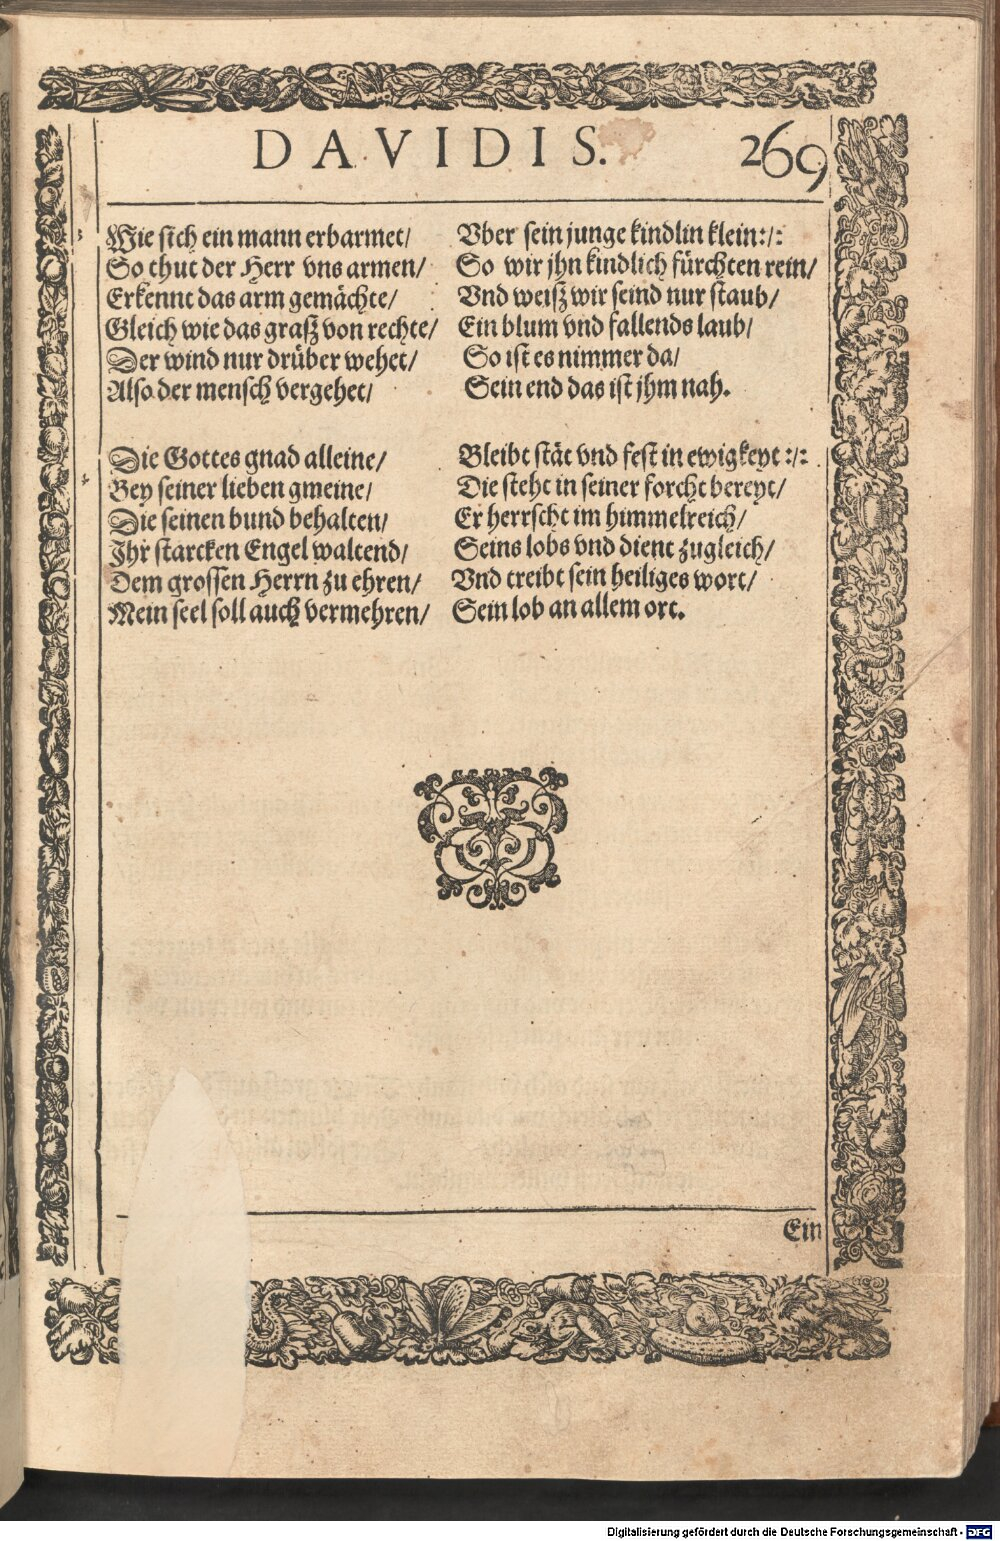 DAVIDIS. 269
Wie sich ein mann erbarmet/ Vber sein junge kindlin klein:/:
So thut der Herr vns armen/ So wir jhn kindlich fürchten rein/
Erkennt das arm gemächte/ Vnd weiß wir seind nur staub/
Gleich wie das graß von rechte/ Ein blum vnd fallends laub/
Der wind nur drüber wehet/ So ist es nimmer da/
Also der mensch vergehet/ Sein end das ist jhm nah.
Die Gottes gnad alleine/ Bleibt stät vnd fest in ewigkeyt :/:
Bey seiner lieben gmeine/ Die steht in seiner forcht bereyt/
Die seinen bund behalten/ Er herrscht im himmelreich/
Jhr starcken Engel waltend/ Seins lobs vnd dient zugleich/
Dem grossen Herrn zu ehren/ Vnd treibt sein heiliges wort/
Mein seel soll auch vermehren/ Sein lob an allem ort.
Ein
Digitalisierung gefördert durch die Deutsche Forschungsgemeinschaft - DFG